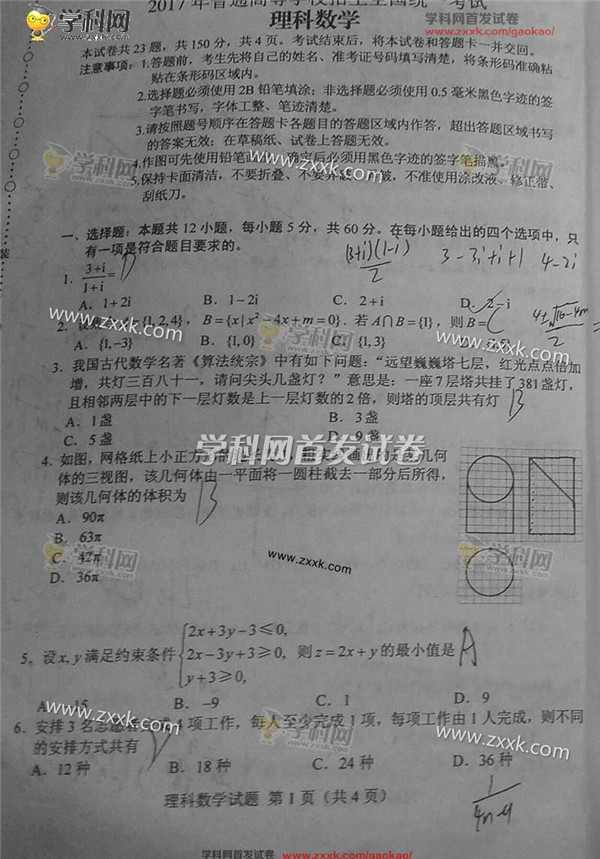 学科网首发试卷
www.zxxk.com/gaokao/
2017年普通高等学校招生全国统一考试
理科数学
本试卷共 23 题，共 150 分，共 4 页。考试结束后，将本试卷和答题卡一并交回。
注意事项：1.答题前，考生先将自己的姓名、准考证号码填写清楚，将条形码准确粘
贴在条形码区域内。
2.选择题必须使用 2B 铅笔填涂；非选择题必须使用 0.5 毫米黑色字迹的签
字笔书写，字体工整、笔迹清楚。
3.请按照题号顺序在答题卡各题目的答题区域内作答，超出答题区域书写
的答案无效；在草稿纸、试卷上答题无效。
4.作图可先使用铅笔画 确定后必须用黑色字迹的签字笔描
5.保持卡面清洁，不要折叠、不要弄 不准使用涂改液、修正带、
刮纸刀。
学科网
www.zxxk.com
一、选择题：本题共 12 小题，每小题 5 分，共 60 分。在每小题给出的四个选项中，只
有一项是符合题目要求的。
(3+i)(1-i)/2 3-3i+i+1 4-2i
1. (3+i)/(1+i)= D
A. 1+2i B. 1-2i C. 2+i D. 2-i
2. {1,2,4}，B={x|x²-4x+m=0}．若 A∩B={1}，则 B= C
A. {1,-3} B. {1,0} C. {1,3}
www.zxxk.com
学科网
3. 我国古代数学名著《算法统宗》中有如下问题：“远望巍巍塔七层，红光点点倍加
增，共灯三百八十一，请问尖头几盏灯？”意思是：一座 7 层塔共挂了 381 盏灯，
且相邻两层中的下一层灯数是上一层灯数的 2 倍，则塔的顶层共有灯 B
A. 1 盏 B. 3 盏
C. 5 盏 D. 9 盏
学科网首发试卷
4. 如图，网格纸上小正方形的 几何
体的三视图，该几何体由一平面将一圆柱截去一部分后所得，
则该几何体的体积为 B
A. 90π
B. 63π
C. 42π
D. 36π
学科网
www.zxxk.com
5. 设 x, y 满足约束条件 {2x+3y-3≤0, 2x-3y+3≥0, y+3≥0, 则 z=2x+y 的最小值是 A
A. -15 B. -9 C. 1 D. 9
6. 安排 3 名志愿者 4 项工作，每人至少完成 1 项，每项工作由 1 人完成，则不同
的安排方式共有 D
A. 12 种 B. 18 种 C. 24 种 D. 36 种
www.zxxk.com
学科网
理科数学试题 第 1 页（共 4 页）
学科网首发试卷 www.zxxk.com/gaokao/